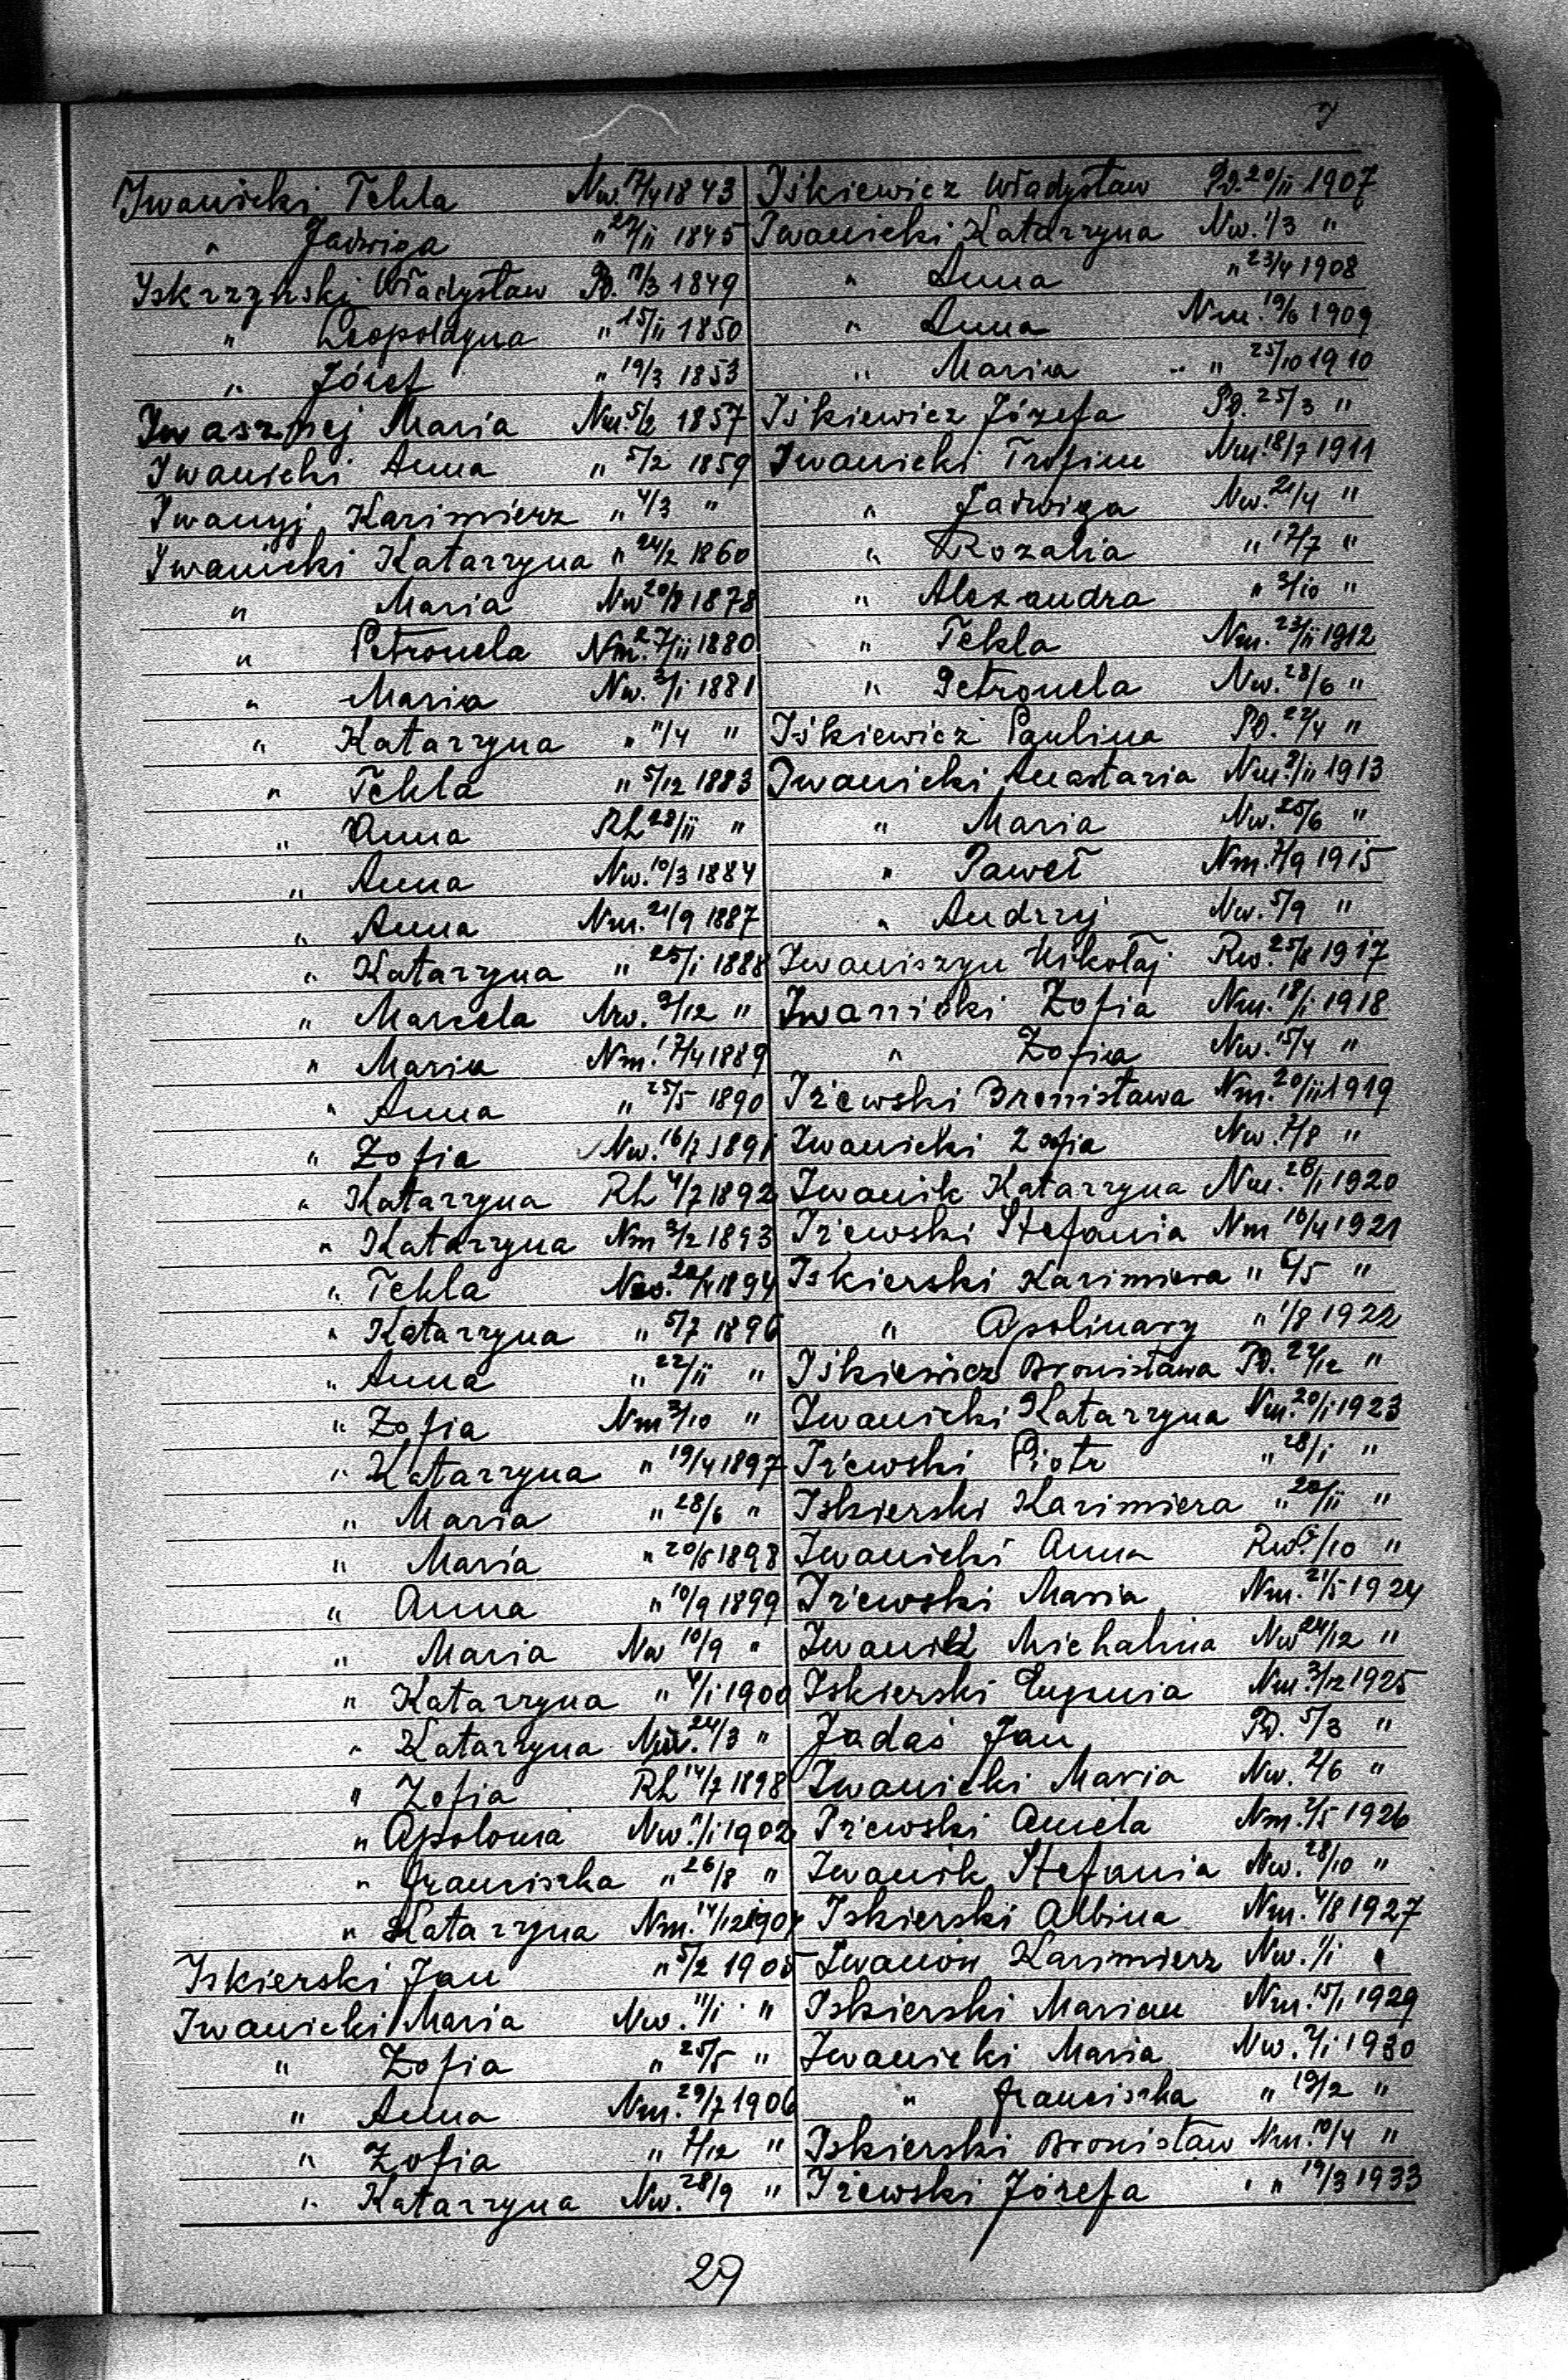 J
Iwanicki Tekla Nw. 17/4 1843
" Jadwiga " 27/ii 1845
Iskrzyński Władysław Pd. 11/3 1849
" Leopoldyna " 15/ii 1850
" Józef " 19/3 1853
Iwasznej Maria Nm. 5/2 1857
Iwanicki Anna " 5/2 1859
Iwanyj Kazimierz " 4/3 "
Iwanicki Katarzyna " 24/2 1860
" Maria Nw 20/8 1878
" Petronela Nm. 27/ii 1880
" Maria Nw. 2/i 1881
" Katarzyna " 11/4 "
" Tekla " 5/12 1883
" Anna Rh 28/ii "
" Anna Nw. 10/3 1884
" Anna Nm. 21/9 1887
" Katarzyna " 25/i 1888
" Marcela Nw. 9/12 "
" Maria Nm. 17/4 1889
" Anna " 25/5 1890
" Zofia Nw. 16/7 1891
" Katarzyna Rh 4/7 1892
" Katarzyna Nm 3/2 1893
" Tekla Nw. 1894
" Katarzyna " 5/7 1896
" Anna " 22/ii "
" Zofia Nm 3/10 "
" Katarzyna " 19/4 1897
" Maria " 28/6 "
" Maria " 20/5 1898
" Anna " 10/9 1899
" Maria Nw 10/9 "
" Katarzyna " 4/i 1900
" Katarzyna Nw. 24/3 "
" Zofia Rh 14/7 1898
" Apolonia Nw. 11/i 1902
" Franciszka " 26/8 "
" Katarzyna Nm. 14/12 1904
Iskierski Jan " 5/2 1905
Iwanicki Maria Nw. 11/i "
" Zofia " 25/5 "
" Anna Nm. 29/7 1906
" Zofia " 7/12 "
" Katarzyna Nw. 28/9 "
Iśkiewicz Władysław Pd. 20/ii 1907
Iwanicki Katarzyna Nw. 1/3 "
" Anna " 23/4 1908
" Anna Nm. 19/6 1909
" Maria " 25/10 1910
Iśkiewicz Józefa Pd. 25/3 "
Iwanicki Trofim Nm. 18/7 1911
" Jadwiga Nw. 21/4 "
" Rozalia " 17/7 "
" Alexandra " 3/10 "
" Tekla Nm. 23/ii 1912
" Petronela Nw. 28/6 "
Iśkiewicz Paulina Pd. 27/4 "
Iwanicki Anastazia Nm. 9/ii 1913
" Maria Nw. 25/6 "
" Paweł Nm. 7/9 1915
" Andrzej Nw. 5/9 "
Iwaniszyn Mikołaj Rw. 25/8 1917
Iwanicki Zofia Nm. 18/i 1918
" Zofia Nw. 15/4 "
Iżewski Bronisława Nm. 20/ii 1919
Iwanicki Zofia Nw. 7/8 "
Iwanik Katarzyna Nm. 28/i 1920
Iżewski Stefania Nm 10/4 1921
Iskierski Kazimiera " 6/5 "
" Apolinary " 1/8 1922
Iśkiewicz Bronisława Pd. 27/12 "
Iwanicki Katarzyna Nm. 20/i 1923
Iżewski Piotr " 28/i "
Iskierski Kazimiera " 20/ii "
Iwanicki Anna Rw. 5/10 "
Iżewski Maria Nm. 21/5 1924
Iwanik Michalina Nw 24/12 "
Iskierski Eugenia Nm. 3/12 1925
Jadaś Jan Pd. 5/3 "
Iwanicki Maria Nw. 2/6 "
Iżewski Aniela Nm. 2/5 1926
Iwanik Stefania Nw. 28/10 "
Iskierski Albina Nm. 4/8 1927
Iwanon Kazimierz Nw. 1/i "
Iskierski Marian Nm. 15/i 1929
Iwanicki Maria Nw. 7/i 1930
" Franciszka " 19/2 "
Iskierski Bronisław Nm. 10/4 "
Iżewski Józefa " " 19/3 1933
29